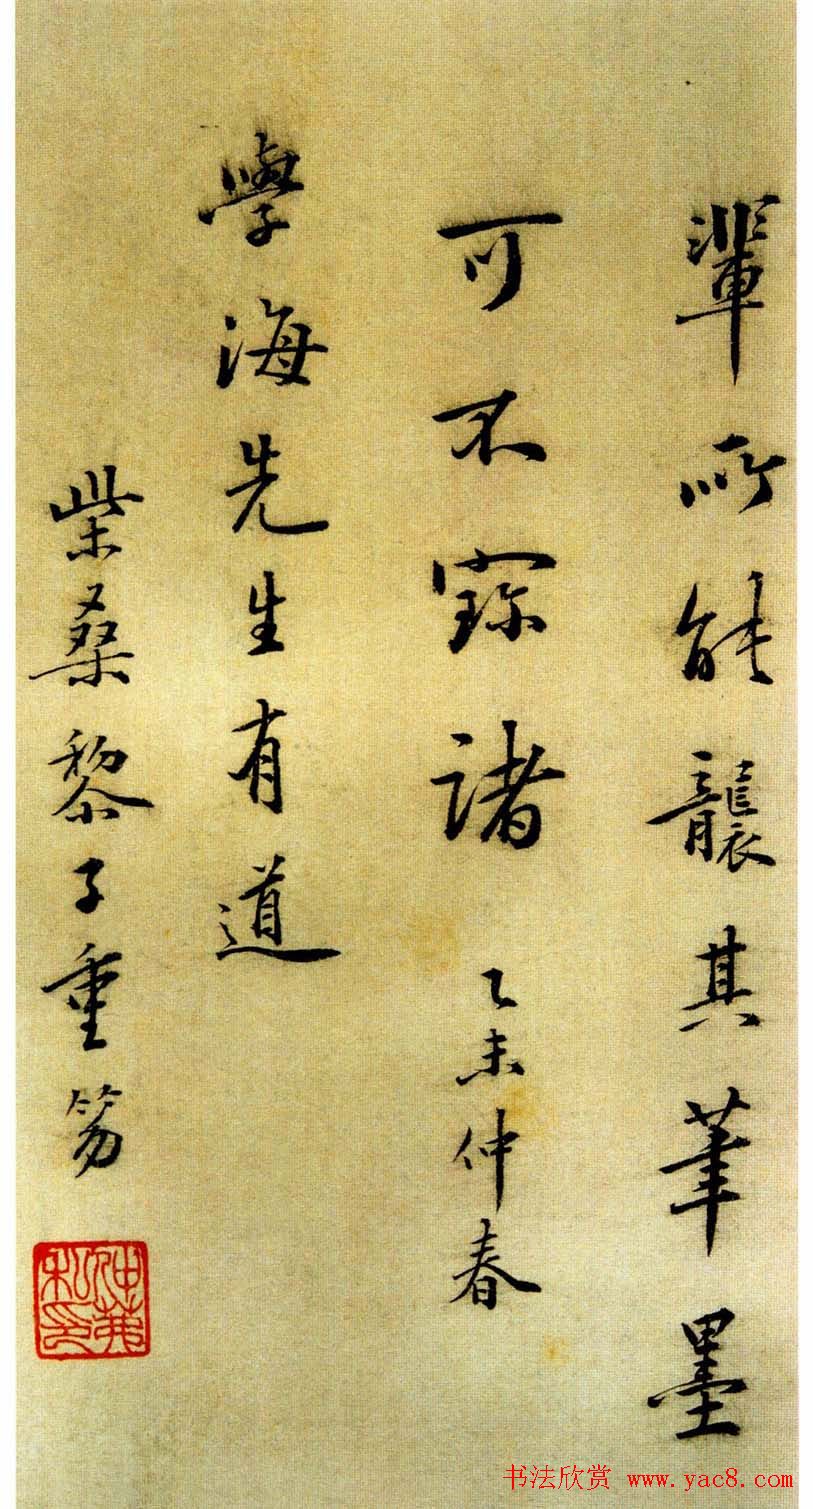 輩所能襲其筆墨
可不寶諸 乙未仲春
學海先生有道
柴桑黎子重笏
书法欣赏 www.yac8.com